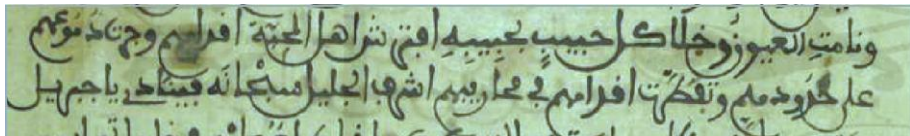 ونامتِ العيون وخلا كل حبيبٍ بحبيبِهِ افترش اهل المحبّة اقدامهم وجرت دموعهم
على خدودهم وتفطّرت اقدامهم في محاريبهم اشرف الجليل سبحانه فينادي يا جبريل